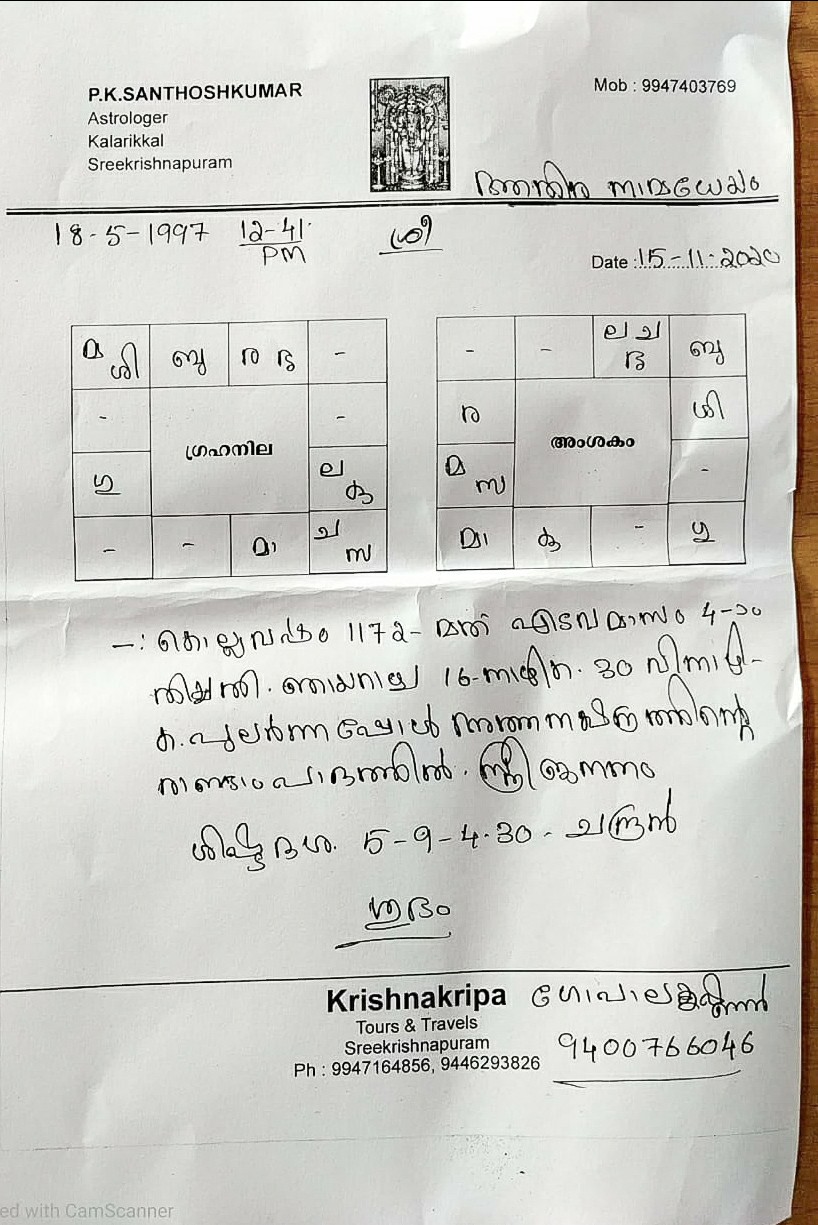 P.K.SANTHOSHKUMAR
Astrologer
Kalarikkal
Sreekrishnapuram
Mob : 9947403769
18-5-1997 12-41 PM
ശ്രീ
Date : 15-11-2020
മ ശി ബു ര ഭ -
- -
ഗ്രഹനില
ഗു ല കു
- - മാ ച സ
- - ല ച ഭ ബു
ര ശി
അംശകം
മ സ -
മാ കു - ഗു
-: കൊല്ലവർഷം 1172-മത് എടവമാസം 4-ാം
തിയ്യതി. ഞായറാഴ്ച 16-നാഴിക. 30 വിനാഴി-
ക. പുലർന്നപ്പോൾ അത്തനക്ഷത്രത്തിന്റെ
രണ്ടാംപാദത്തിൽ. സ്ത്രീജനനം
ശിഷ്ടദശ. 5-9-4-30- ചന്ദ്രൻ
ശുഭം
Krishnakripa
Tours & Travels
Sreekrishnapuram
Ph : 9947164856, 9446293826
9400766046
ed with CamScanner